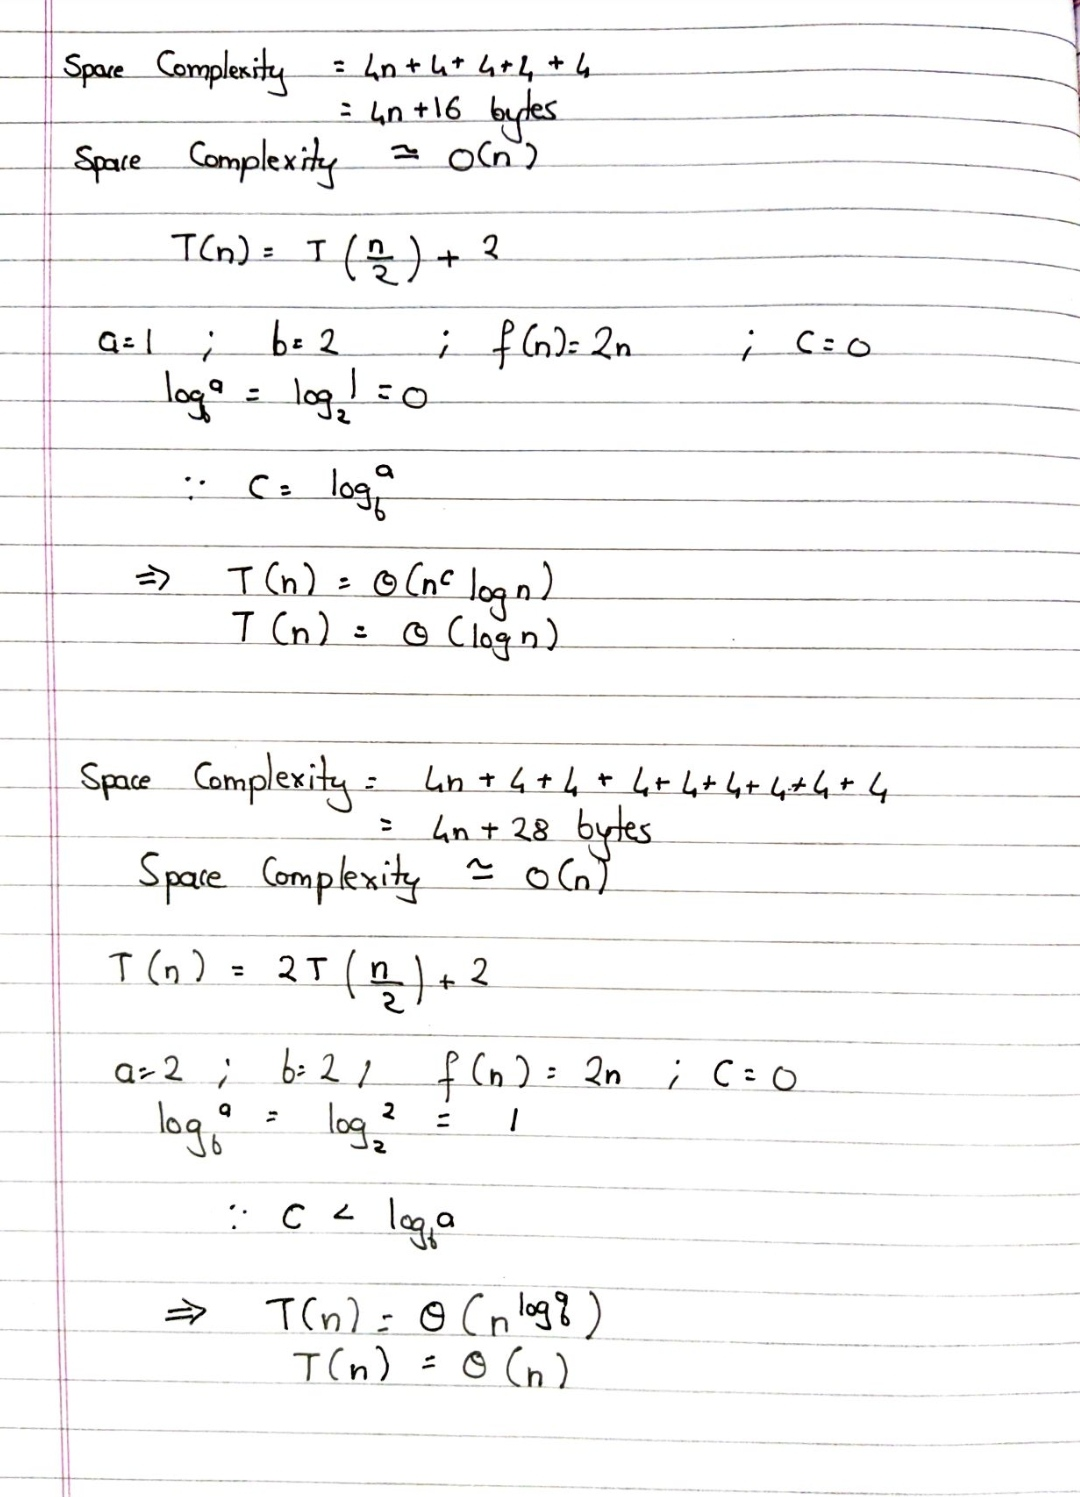 Space Complexity = 4n + 4 + 4 + 4 + 4
= 4n + 16 bytes
Space Complexity ≃ O(n)
T(n) = T(n/2) + 2
a=1 ; b=2 ; f(n)=2n ; C=0
log_b^a = log_2^1 = 0
∵ C = log_b^a
⇒ T(n) = Θ(n^c log n)
T(n) = Θ(log n)
Space Complexity = 4n + 4 + 4 + 4 + 4 + 4 + 4 + 4 + 4
= 4n + 28 bytes
Space Complexity ≃ O(n)
T(n) = 2T(n/2) + 2
a=2 ; b=2 ; f(n) = 2n ; C=0
log_b^a = log_2^2 = 1
∵ C < log_b a
⇒ T(n) = Θ(n^(log_b^a))
T(n) = Θ(n)